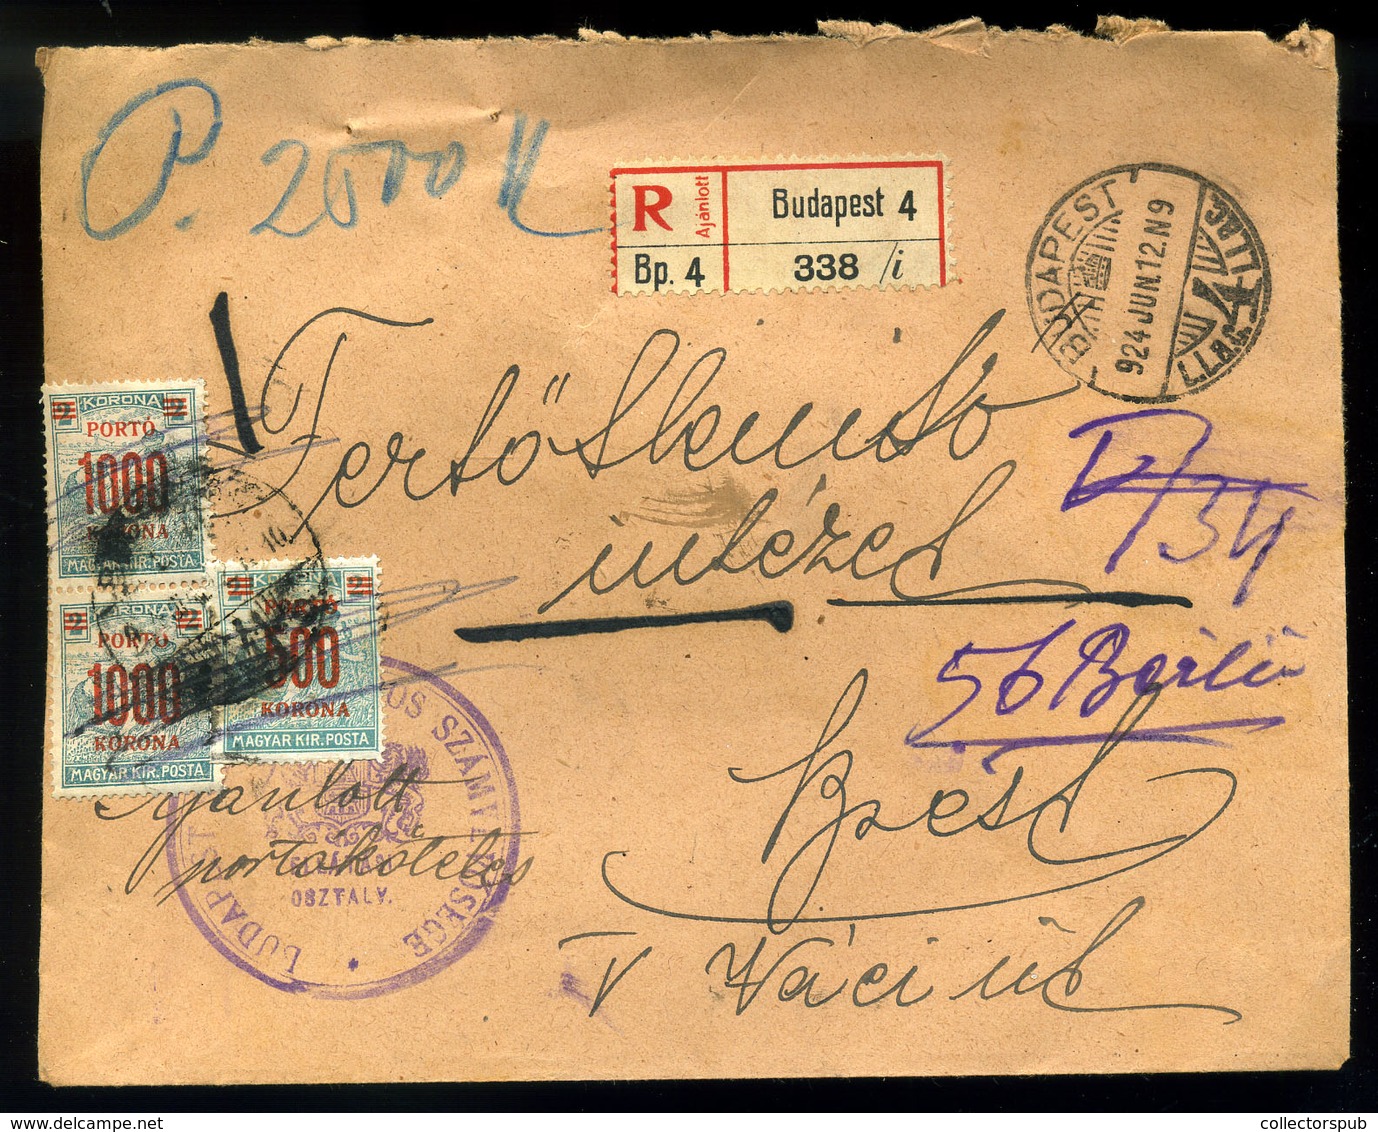 P. 2500 K
R
Ajánlott
Budapest 4
Bp. 4
338 /i
BUDAPEST 4
924 JUN.12.N 9
Fertőtlenitő
intézet
34
56 Bérlü
Bpest
V Váci út
2 KORONA 2
PORTÓ
1000
KORONA
MAGYAR KIR. POSTA
2 KORONA 2
PORTÓ
1000
KORONA
MAGYAR KIR. POSTA
2 KORONA 2
PORTÓ
500
KORONA
MAGYAR KIR. POSTA
Ajánlott
portóköteles
OSZTÁLY.
collectorspub